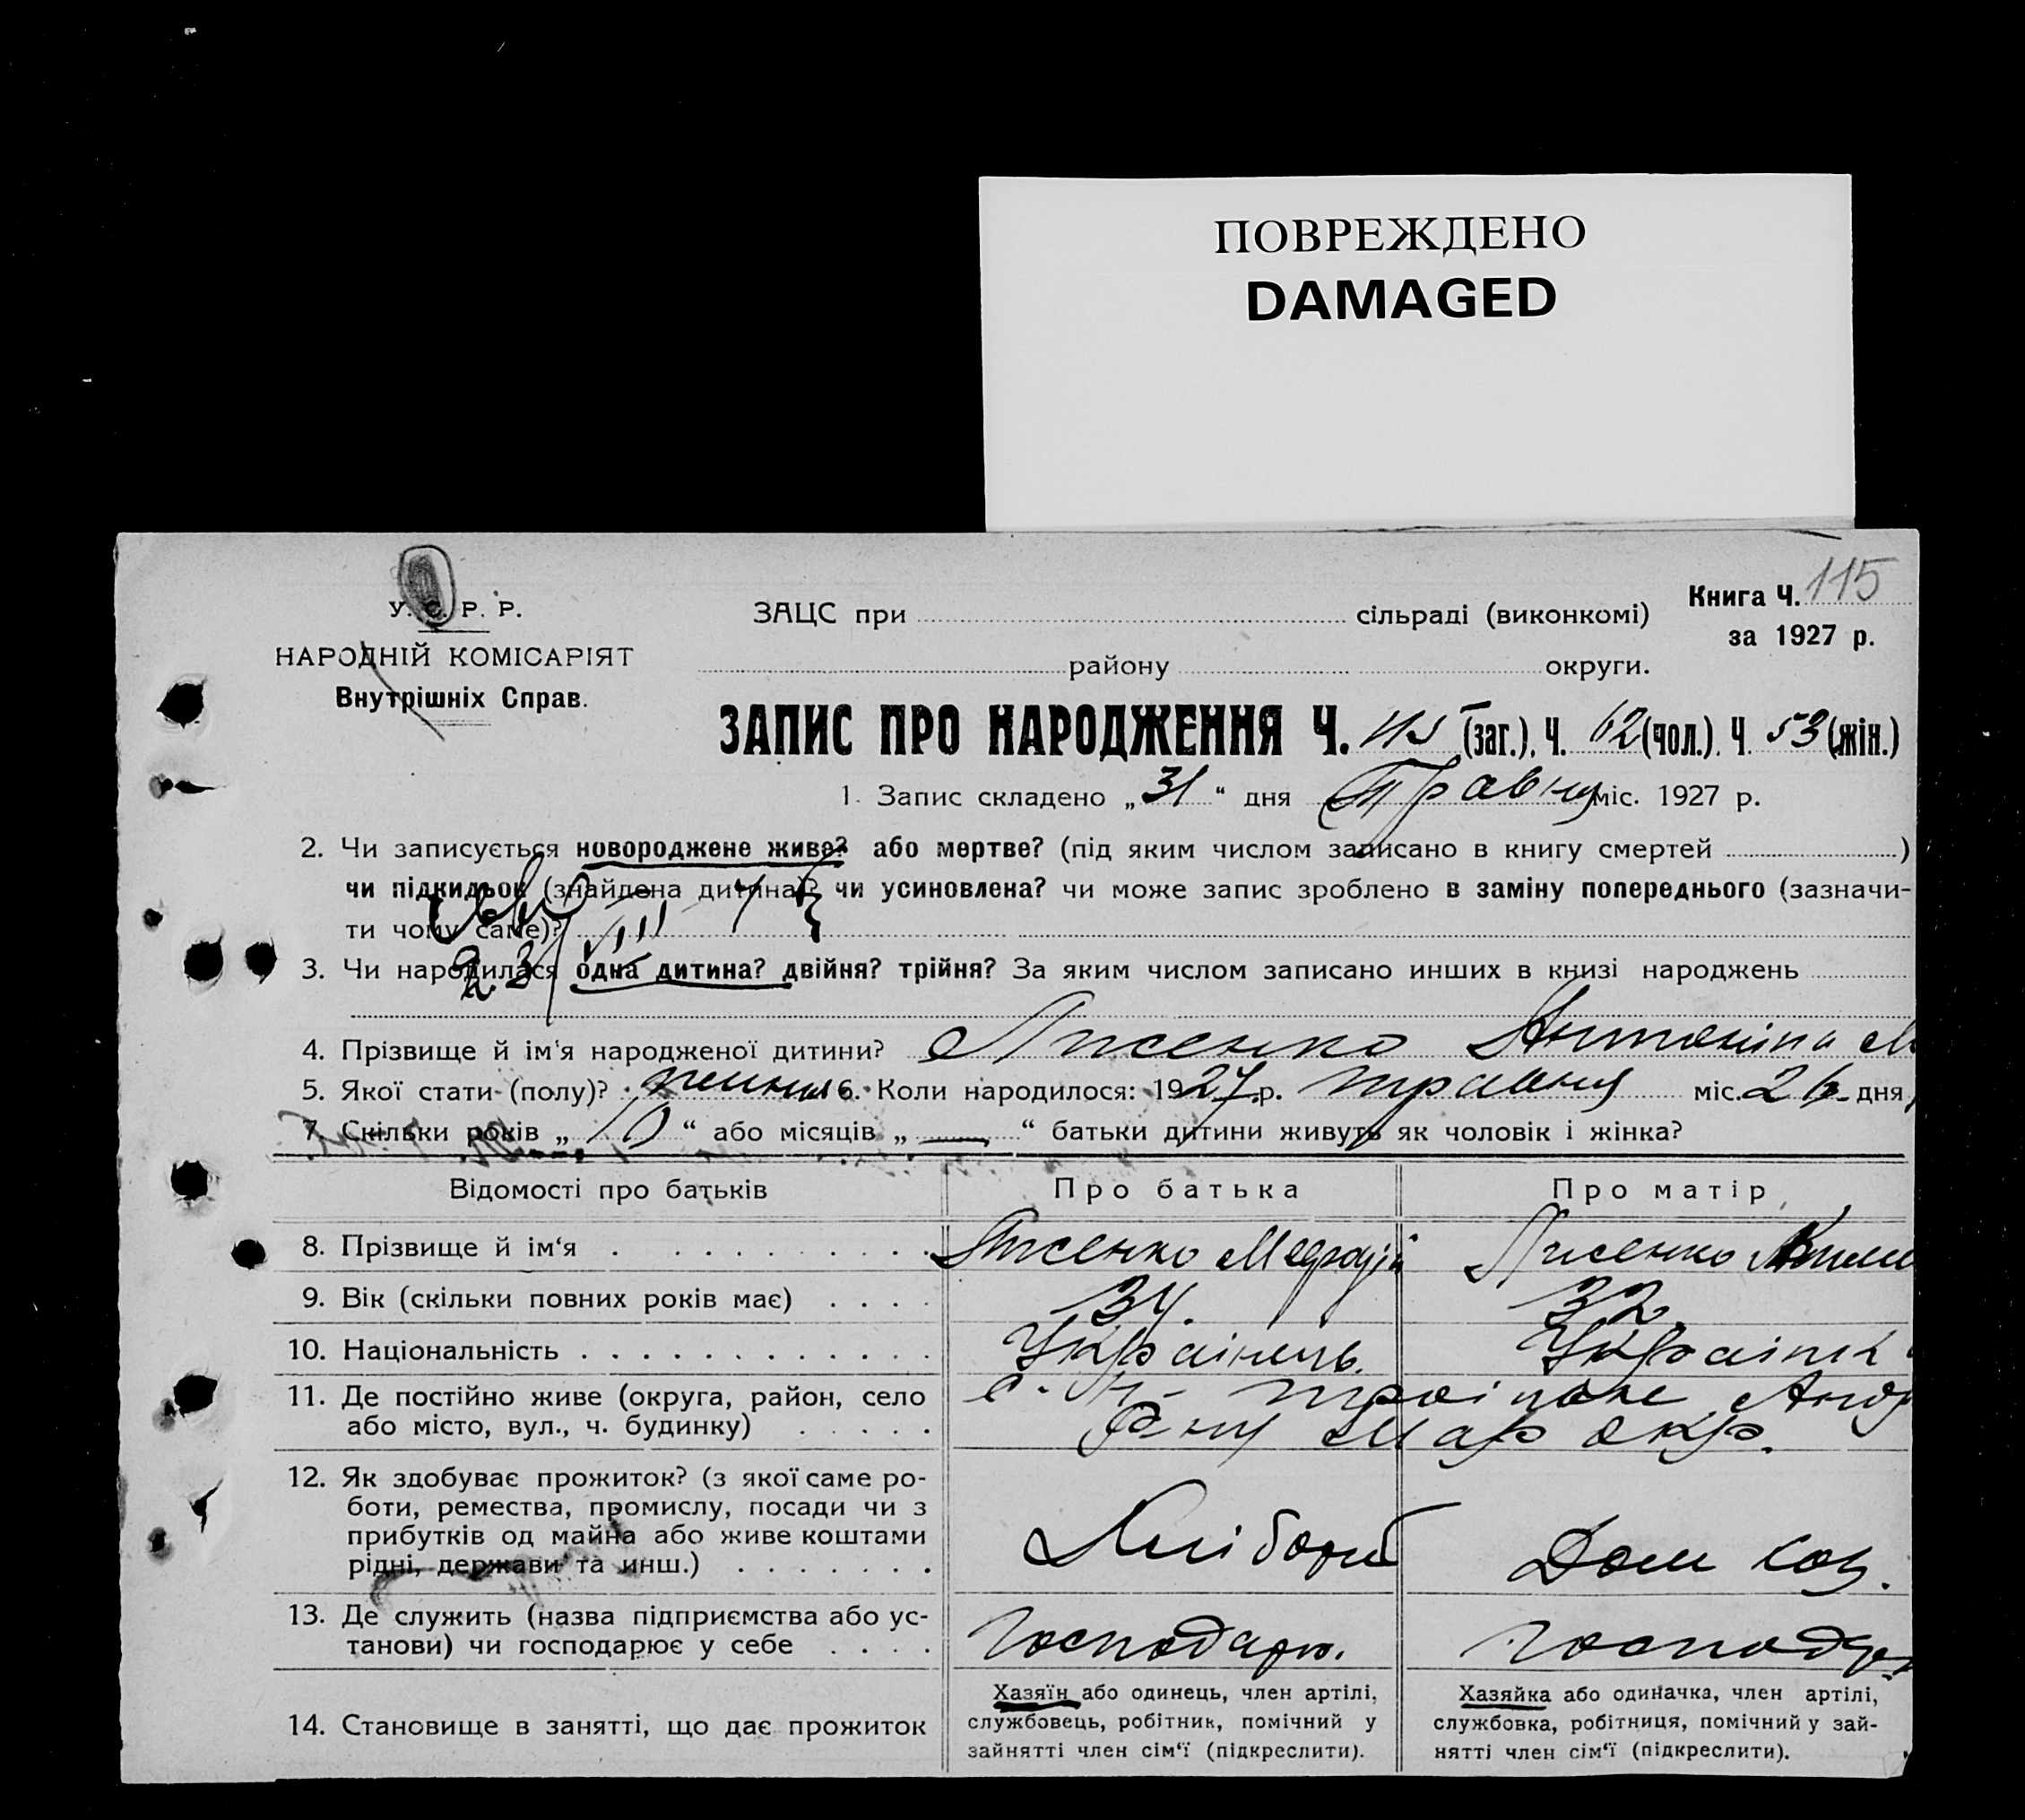 ПОВРЕЖДЕНО
DAMAGED
115
У. С. Р. Р.
НАРОДНІЙ КОМІСАРІЯТ
Внутрішніх Справ.
ЗАЦС при сільраді (виконкомі)
району округи.
Книга Ч.
за 1927 р.
ЗАПИС ПРО НАРОДЖЕННЯ Ч. 115 (заг.), Ч. 62 (чол.), Ч. 53 (жін.)
1. Запис складено „31“ дня Травня міс. 1927 р.
2. Чи записується новороджене живе? або мертве? (під яким числом записано в книгу смертей )
чи підкидьок (знайдена дитина)? чи усиновлена? чи може запис зроблено в заміну попереднього (зазначи-
ти чому саме)?
3. Чи народилася одна дитина? двійня? трійня? За яким числом записано инших в книзі народжень
4. Прізвище й ім'я народженої дитини? Лисенко Антоніна М
5. Якої стати (полу)? 6. Коли народилося: 1927 р. травня міс. 26 дня
7. Скільки років „10“ або місяців „—“ батьки дитини живуть як чоловік і жінка?
Відомості про батьків Про батька Про матір
8. Прізвище й ім'я Лисенко Лисенко
9. Вік (скільки повних років має) 34. 32.
10. Національність Українець. Українк
11. Де постійно живе (округа, район, село
або місто, вул., ч. будинку)
Мар окр.
12. Як здобуває прожиток? (з якої саме ро-
боти, ремества, промислу, посади чи з
прибутків од майна або живе коштами
рідні, держави та инш.)
Хлібороб Дом хоз.
13. Де служить (назва підприємства або ус-
танови) чи господарює у себе
Господарю. Господар
14. Становище в занятті, що дає прожиток
Хазяїн або одинець, член артілі,
службовець, робітник, помічний у
зайнятті член сім'ї (підкреслити).
Хазяйка або одиначка, член артілі,
службовка, робітниця, помічний у зай-
нятті член сім'ї (підкреслити).